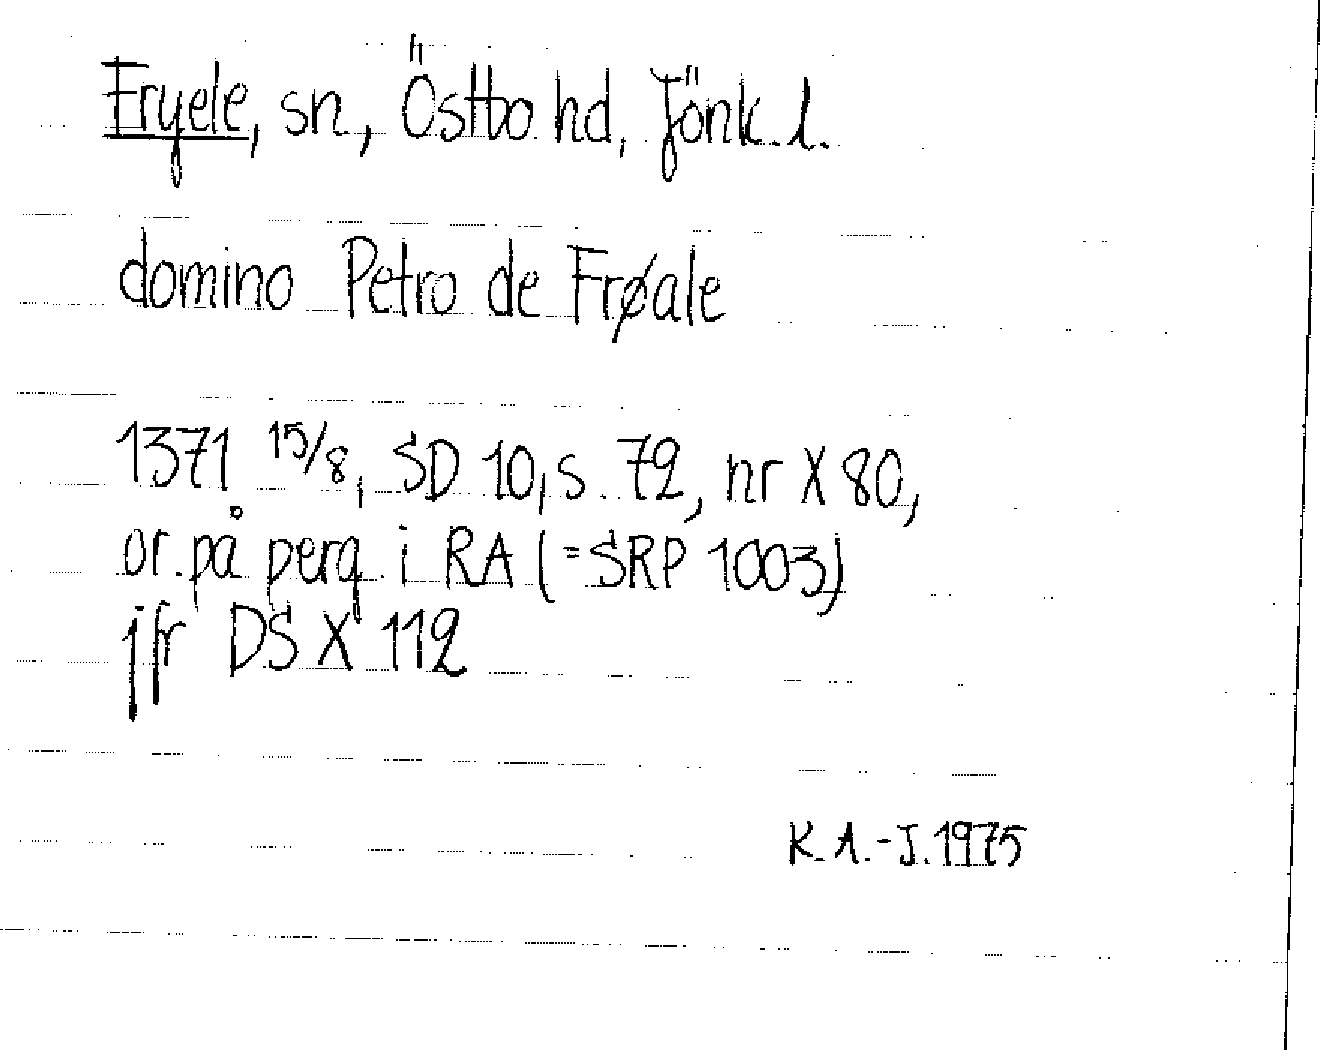 Fryele, sn, Östbo hd, Jönk. l.
domino Petro de Frøale
1371 15/8, SD 10, s. 72, nr X 80,
or. på perg. i RA (=SRP 1003)
jfr DS X 112
K. A.-J. 1975